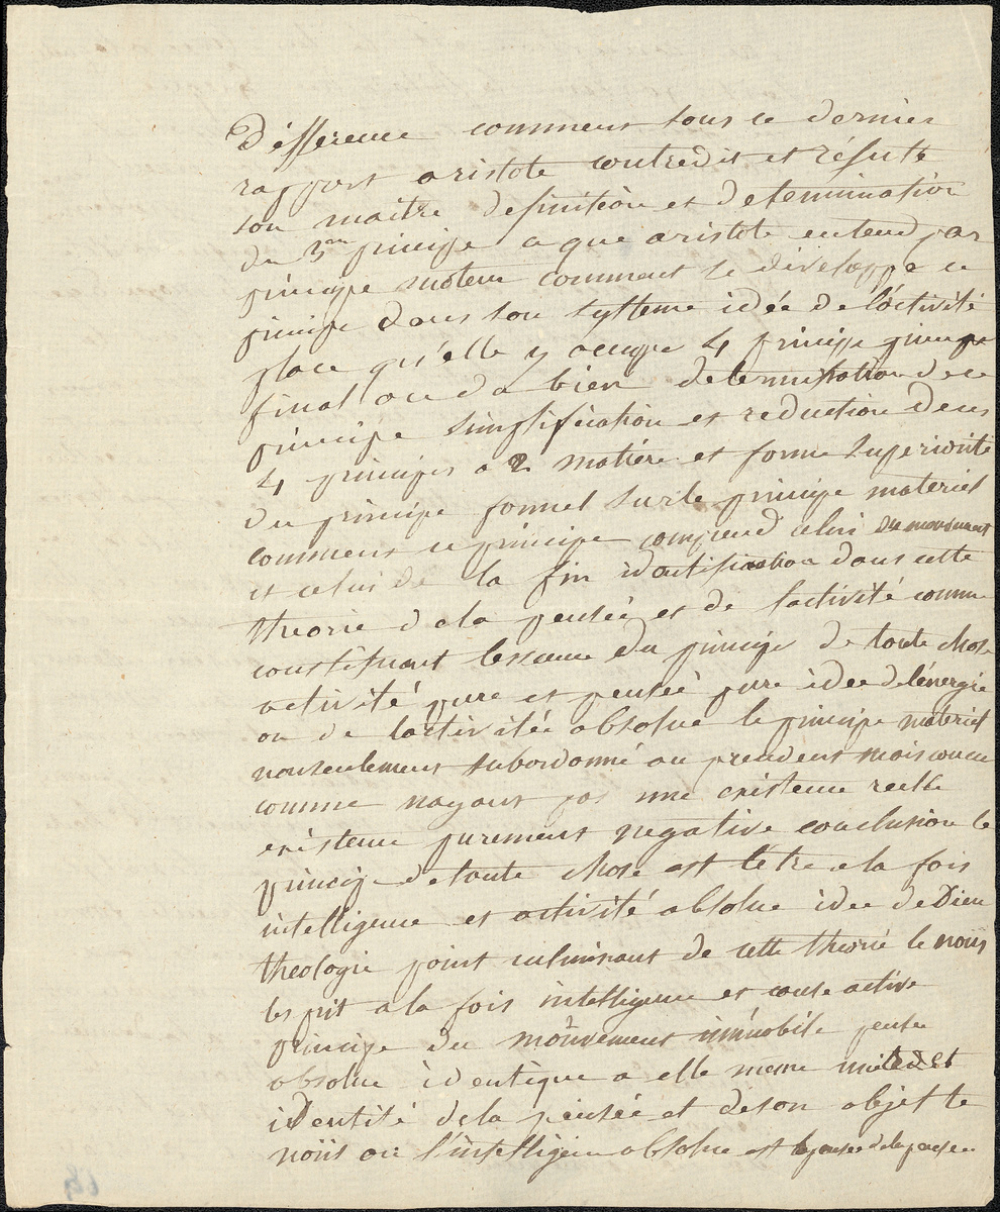 Différence comment sous ce dernier
rapport aristote contredit et réfute
son maitre definition et determination
du 3me principe a que aristote entend par
principe moteur comment se développe ce
principe dans son systteme idée de l'activité
place qu'elle y occupe 4 principe principe
final ou d bien determination de ce
principe simplification et reduction de ces
4 principes a 2 matiére et forme superiorité
du principe formel sur le principe materiel
comment ce principe comprend celui du mouvement
et celui de la fin identification dans cette
theorie dela pensée et de lactivité comme
constituant lessence du principe de toute chose
activité pure et pensée pure idee de lénergie
ou de lactivitée absolue le principe materiel
nonseulement subordonné au precedent mais concu
comme nayant pas une existence reelle
existence purement negative conclusion le
principe detoute chose est létre ala fois
intelligence et activité absolue idee deDieu
theologie point culminant de cette theorie le noüs
lesprit ala fois intelligence et cause active
principe du mouvement immobile pensée
absolue identique a elle meme unité et
identité dela pensée et deson objet le
noüs ou l'intelligence absolue est la pensée dela pensée